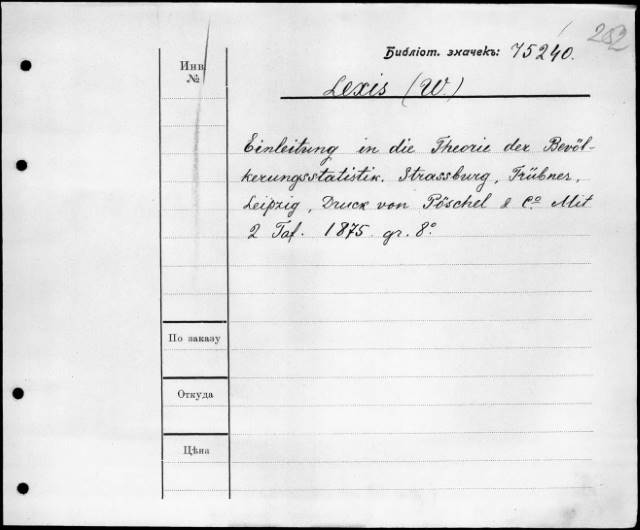 252
Библiот. значекъ: 75240.
Инв.
№
Lexis (W.)
Einleitung in die Theorie der Bevöl-
kerungsstatistik. Strassburg, Trübner,
Leipzig, Druck von Pöschel & Cº Mit
2 Taf. 1875 gr. 8º
По заказу
Откуда
Цѣна